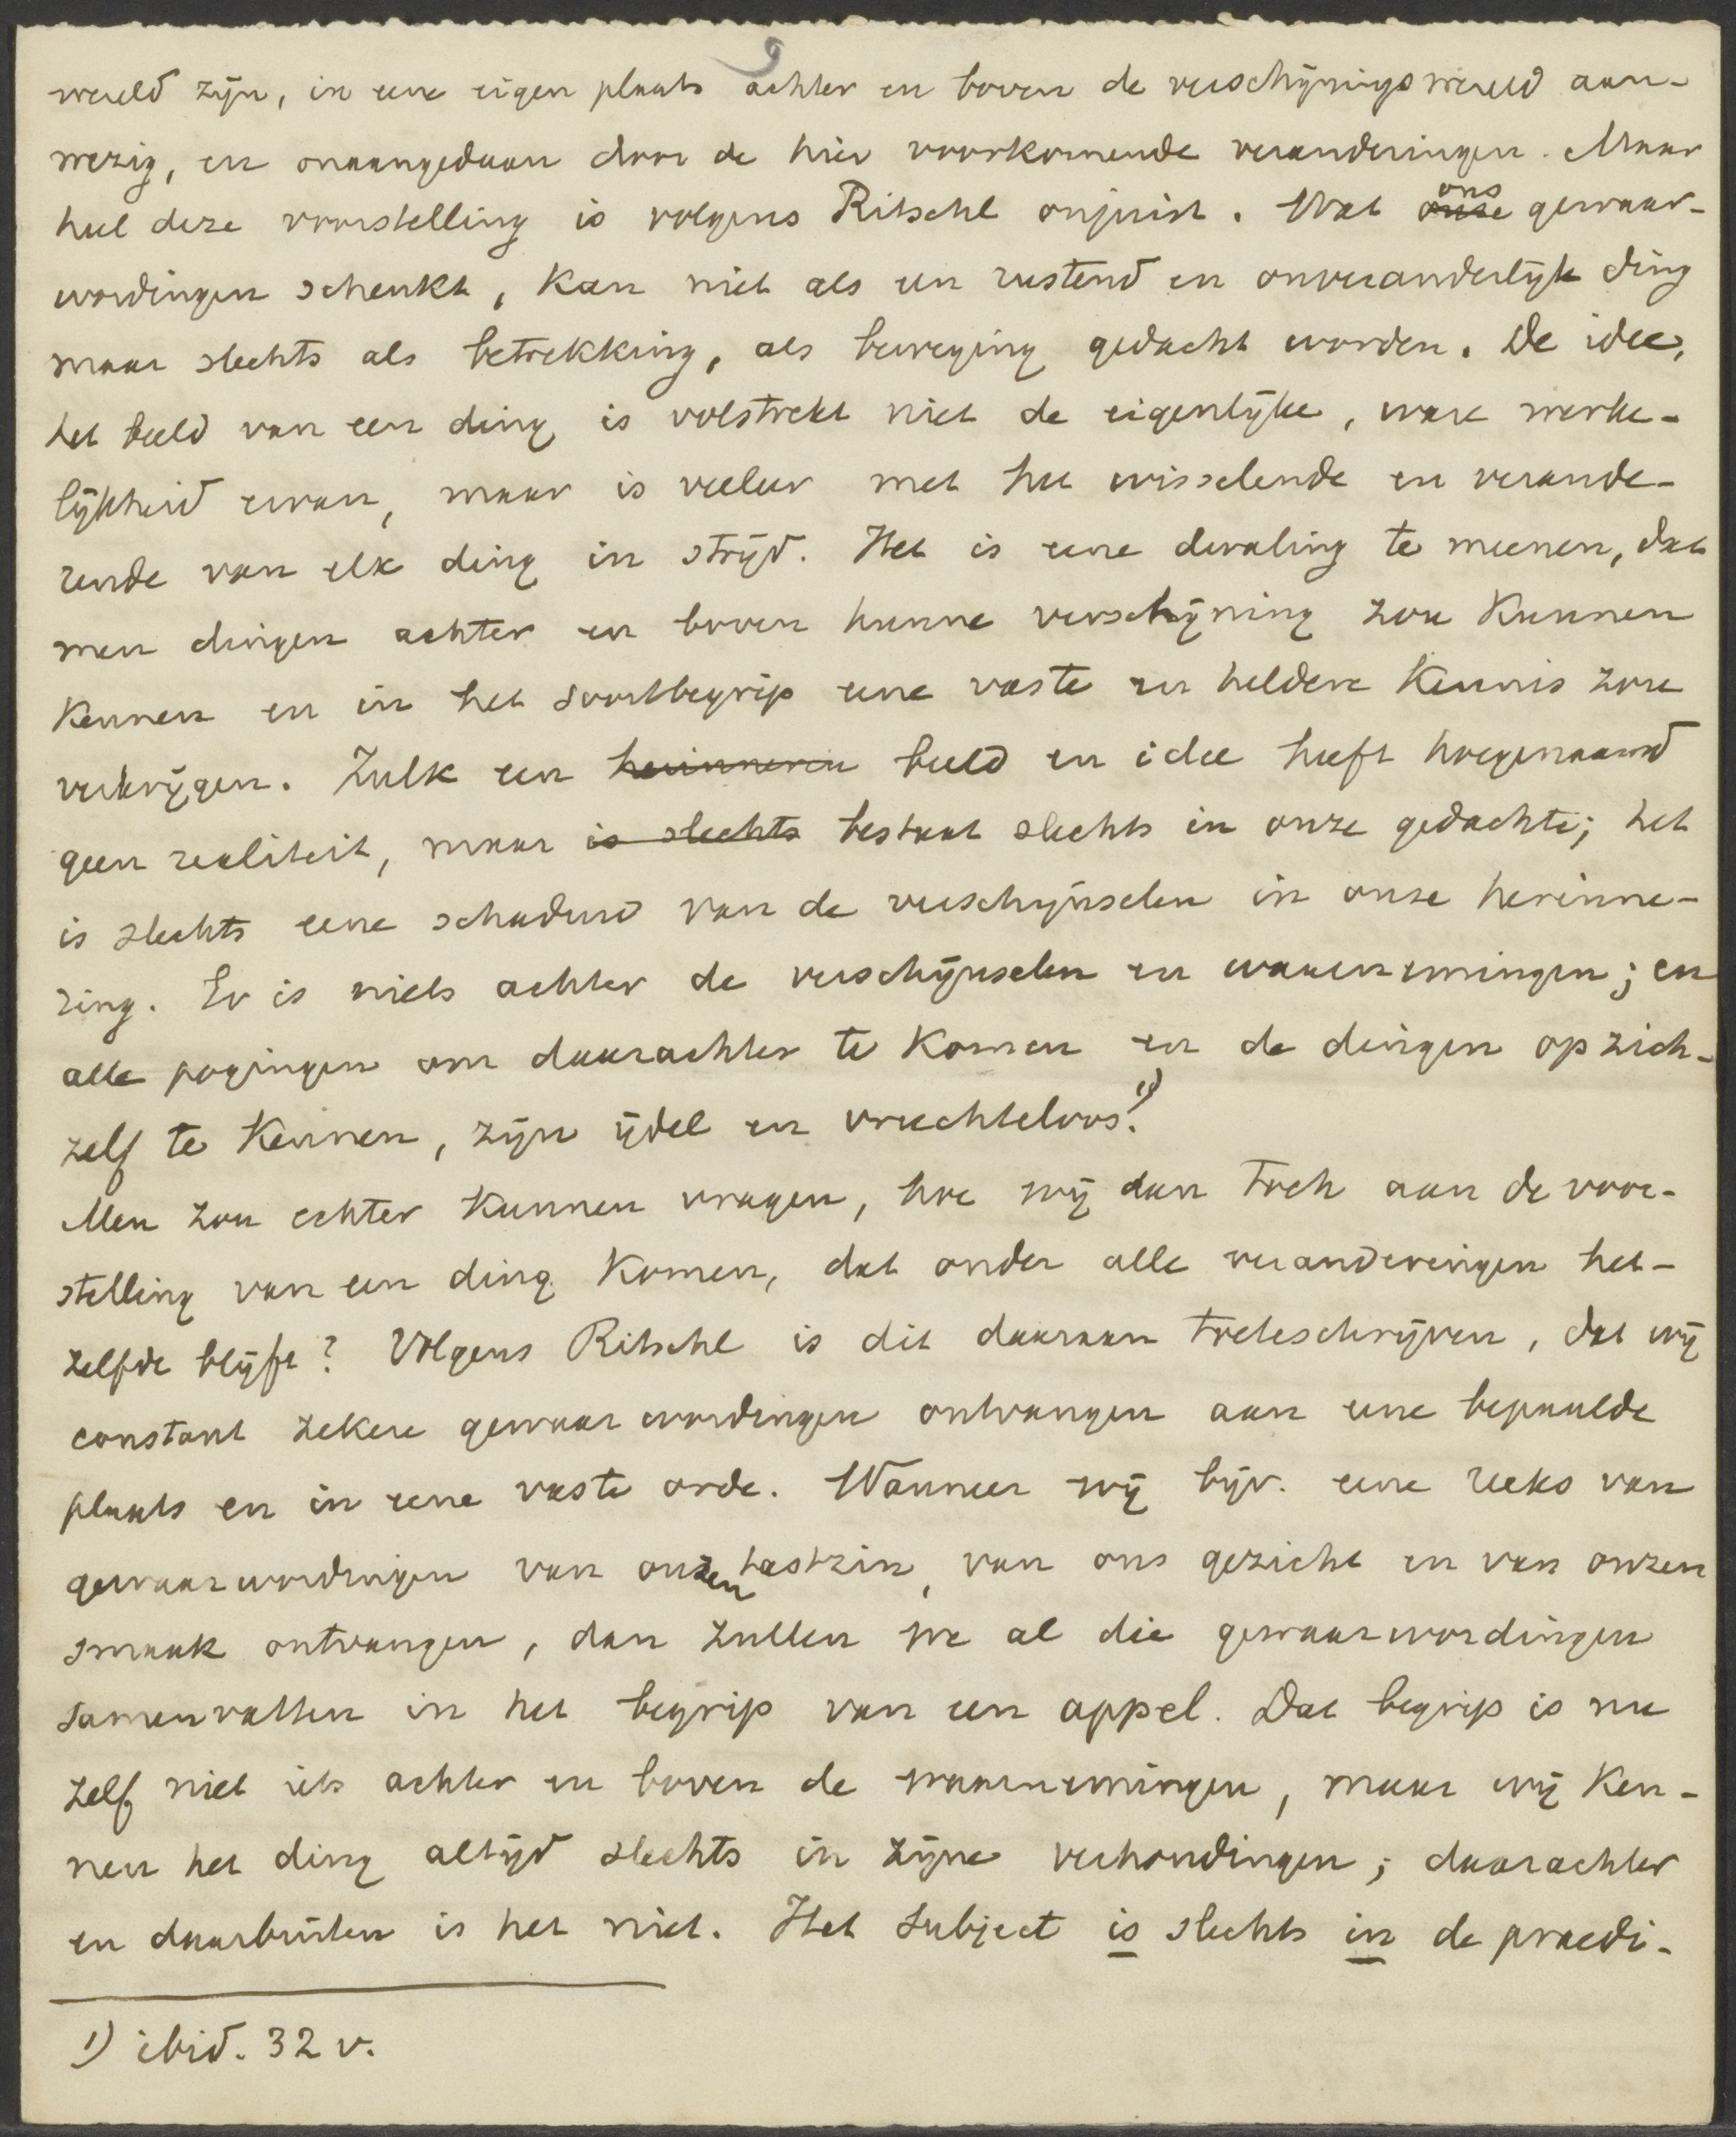 9
wereld zijn, in eene eigen plaats achter en boven de verschijningswereld aan-
wezig, en onaangedaan door de hier voorkomende veranderingen. Maar
heel deze voorstelling is volgens Ritschl onjuist. Wat ~~onze~~ ons gewaar-
wordingen schenkt, kan niet als een rustend en onveranderlijk ding
maar slechts als betrekking, als beweging gedacht worden. De idee,
het beeld van een ding is volstrekt niet de eigenlijke, ware werke-
lijkheid ervan, maar is veeleer met het wisselende en verande-
rende van elk ding in strijd. Het is eene dwaling te meenen, dat
men dingen achter en boven hunne verschijning zou kunnen
kennen en in het soortbegrip eene vaste en heldere kennis zou
verkrijgen. Zulk een ~~herinnerin~~ beeld en idee heeft hoegenaamd
geen realiteit, maar ~~is slechts~~ bestaat slechts in onze gedachte; het
is slechts eene schaduw van de verschijnselen in onze herinne-
ring. Er is niets achter de verschijnselen en waarnemingen; en
alle pogingen om daarachter te komen en de dingen op zich-
zelf te kennen, zijn ijdel en vruchteloos.1)
Men zou echter kunnen vragen, hoe wij dan toch aan de voor-
stelling van een ding komen, dat onder alle veranderingen het-
zelfde blijft? Volgens Ritschl is dit daaraan toeteschrijven, dat wij
constant zekere gewaarwordingen ontvangen aan eene bepaalde
plaats en in eene vaste orde. Wanneer wij bijv. eene reeks van
gewaarwordingen van onzen tastzin, van ons gezicht en van onzen
smaak ontvangen, dan zullen we al die gewaarwordingen
samenvatten in het begrip van een appel. Dat begrip is nu
zelf niet iets achter en boven de waarnemingen, maar wij ken-
nen het ding altijd slechts in zijne verhoudingen; daarachter
en daarbuiten is het niet. Het subject is slechts in de praedi-
1) ibid. 32 v.